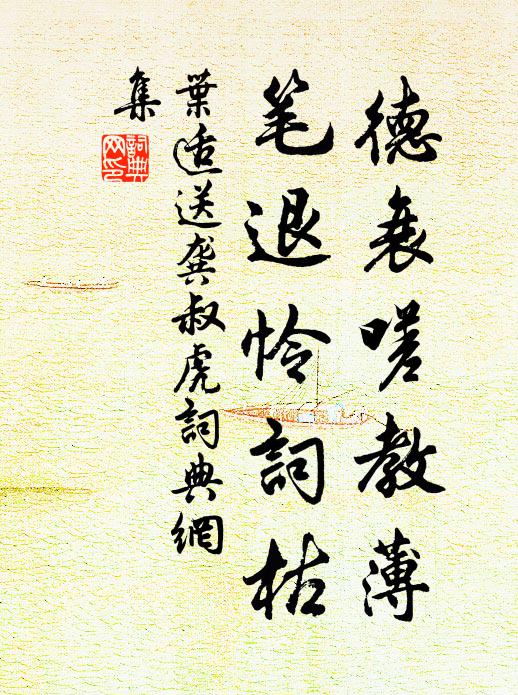 德衰嗟教薄
笔退怜詞枯
葉适送龔叔虎詞典網
集
詞典網印